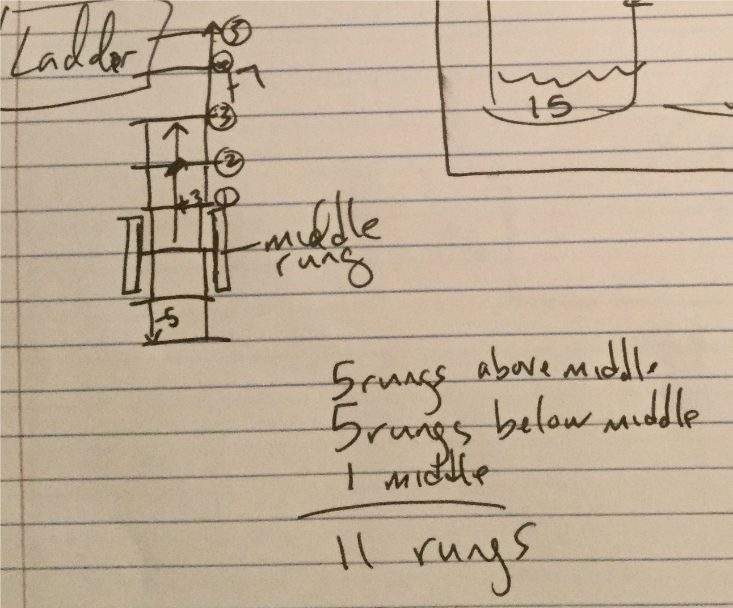 Ladder
5
+7
3
2
+3 1
middle
rung
-5
15
5 rungs above middle
5 rungs below middle
1 middle
11 rungs